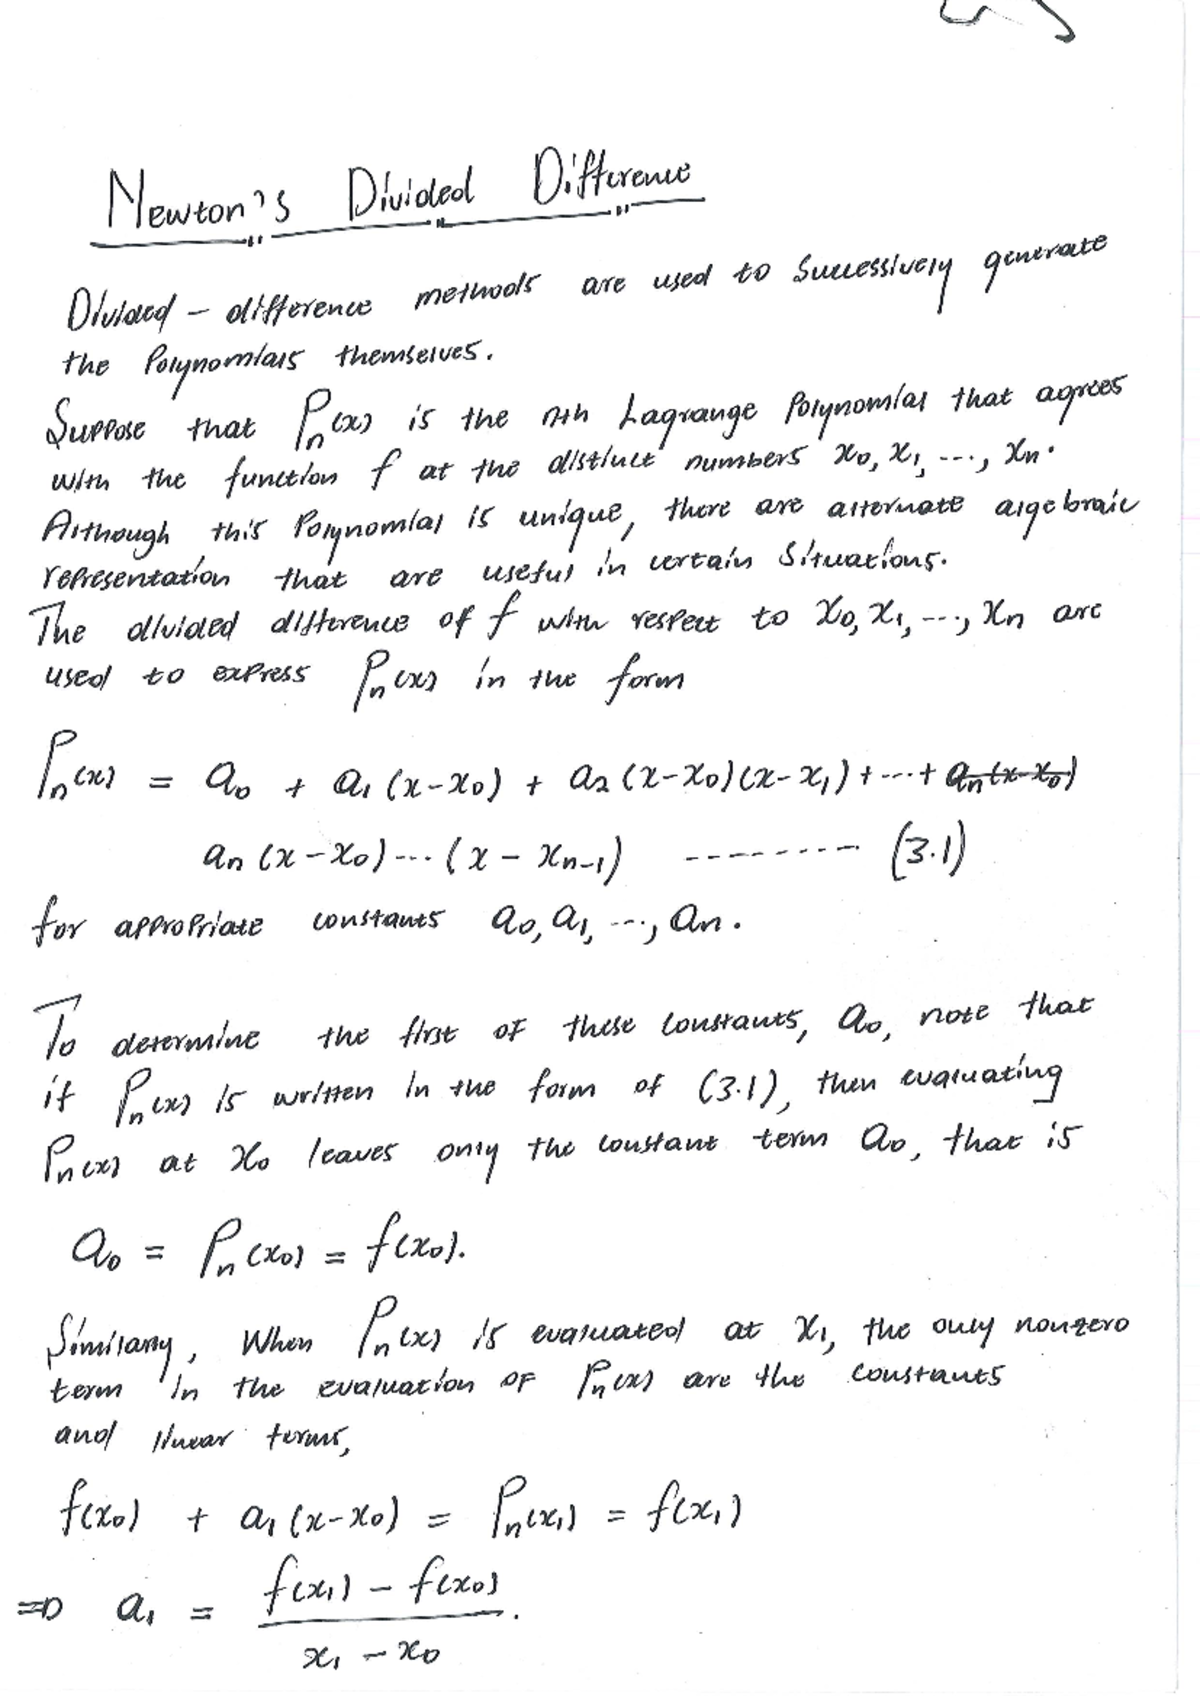 Newton's Divided Difference
Divided - difference methods are used to Successively generate
the Polynomials themselves.
Suppose that Pn(x) is the nth Lagrange Polynomial that agrees
with the function f at the distinct numbers x0, x1, ..., xn.
Although this Polynomial is unique, there are alternate algebraic
representation that are useful in certain Situations.
The divided difference of f with respect to x0, x1, ..., xn are
used to express Pn(x) in the form
Pn(x) = a0 + a1 (x-x0) + a2 (x-x0)(x-x1) + ... + an(x-x0)
an (x-x0) ... (x - xn-1) --------- (3.1)
for appropriate constants a0, a1, ..., an.
To determine the first of these constants, a0, note that
if Pn(x) is written in the form of (3.1), then evaluating
Pn(x) at x0 leaves only the constant term a0, that is
a0 = Pn(x0) = f(x0).
Similarly, When Pn(x) is evaluated at x1, the only nonzero
term in the evaluation of Pn(x) are the constants
and linear terms,
f(x0) + a1 (x-x0) = Pn(x1) = f(x1)
⇒ a1 = f(x1) - f(x0)
x1 - x0 .